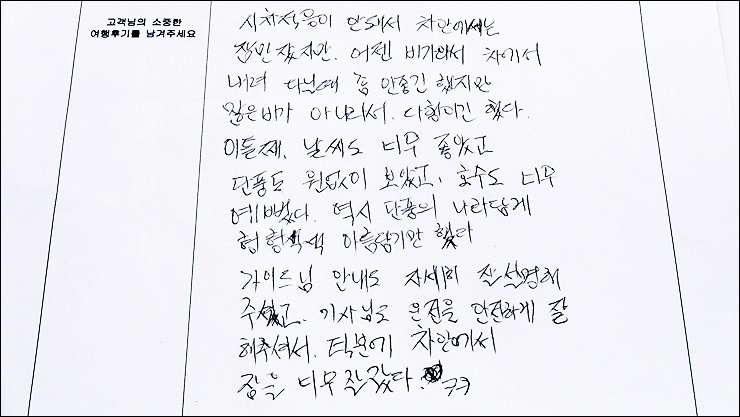 고객님의 소중한
여행후기를 남겨주세요
시차적응이 안돼서 차안에서는
잠만 잤지만. 어젠 비가와서 차에서
내려 다닐때 좀 안좋긴 했지만
많은비가 아니라서. 다행이긴 했다.
이틀째. 날씨도 너무 좋았고
단풍도 원없이 보았고. 호수도 너무
예뻤다. 역시 단풍의 나라답게
형형색색 아름답기만 했다
가이드님 안내도 자세히 잘 설명해
주셨고. 기사님도 운전을 안전하게 잘
해주셔서. 덕분에 차안에서
잠을 너무 잘 잤다. ㅋㅋ